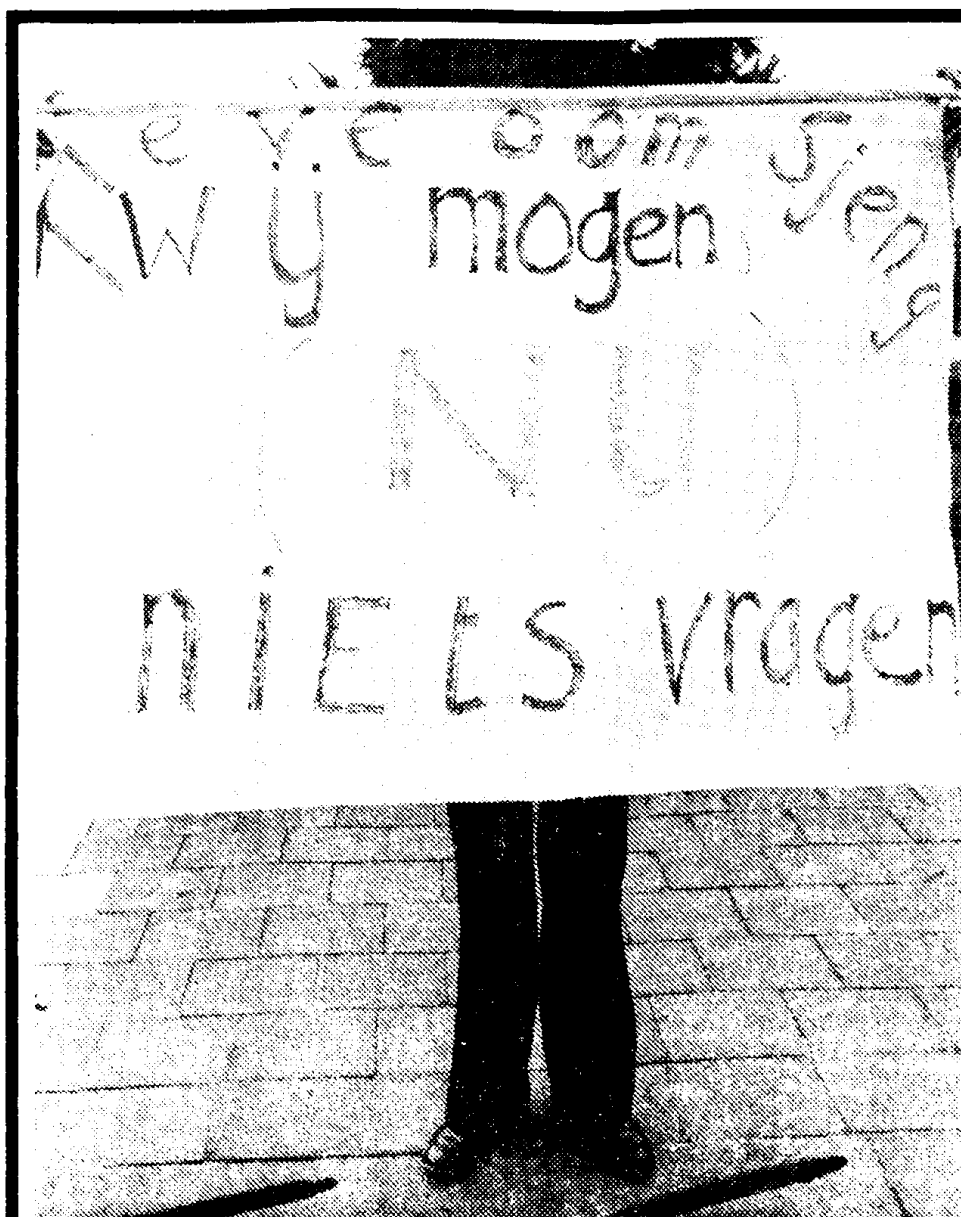 Leve oom Sjeng
wij mogen
(NU)
niEts vragen